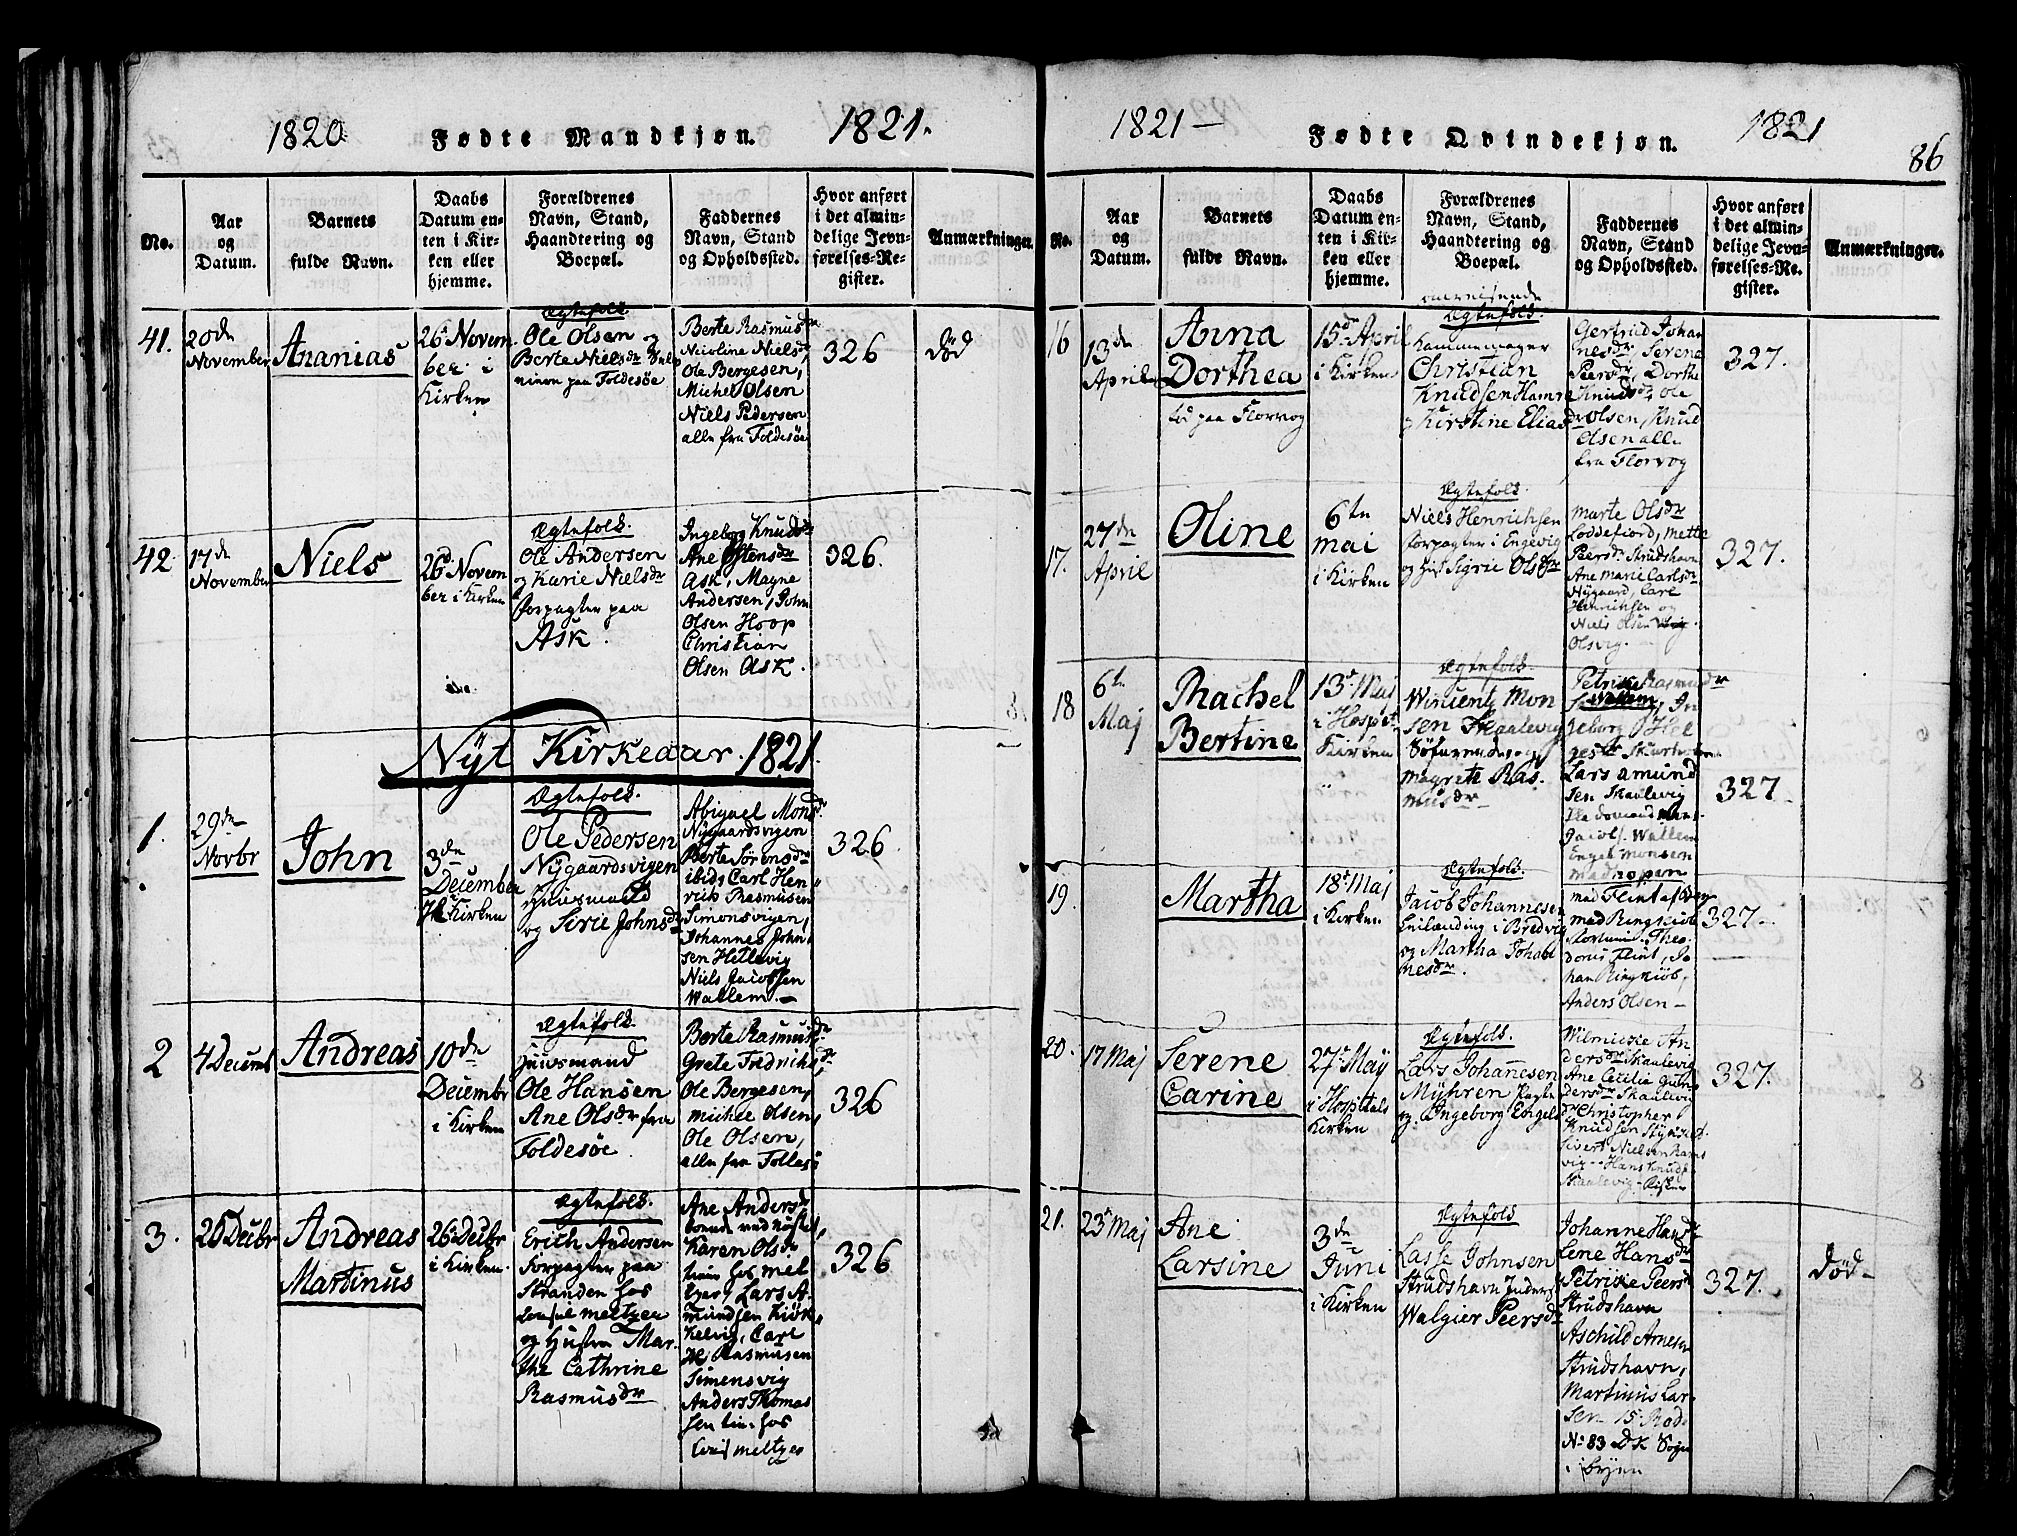 1820
Fødte Mandkjøn.
1821.
No.
Aar
og
Datum.
Barnets
fulde Navn.
Daabs
Datum en-
ten i Kir-
ken eller
hjemme.
Forældrenes
Navn, Stand,
Haandtering og
Boepæl.
Faddernes
Navn, Stand
og Opholdssted.
Hvor anført
i det almin-
delige Jevn-
førelses-Re-
gister.
Anmærkninger.
41.
20de
November
Ananias
26 Novem
ber i
Kirken
Ægtefolk
Ole Olsen
Berte Nielsdr
paa Foldesøe
Berte Rasmusdr
Nicoline Nielsdr
Ole Bergesen,
Michel Olsen
Niels Pedersen
alle fra Foldesøe
326
død
42
17de
November
Niels
26 Novem
ber i Kirken
Ægtefolk.
Ole Andersen
og Karie Nielsdr
forpagter paa
Ask.
Ingeborg Knudsdr
Ane Ostensdr
Ask, Magne
Andersen, John
Olsen Hoop
Christian
Olsen Ask.
326.
Nyt Kirkeaar 1821.
1.
29de
Novbr
John
3de
December
i Kirken
Ægtefolk.
Ole Pedersen
Nygaardsvigen
Huusmand
og Sirie Johnsdr
Abigael Monsdr.
Nygaardsvigen
Berte Sørensdr
ibid, Carl Hen
rich Rasmusen
Simonsvigen,
Johannes John
sen Hellevig
Niels Jacobsen
Wallem.
326.
2
4 Decemb
Andreas
10de
Decembr
i Kirken
Ægtefolk.
Huusmand
Ole Hansen
Ane Olsdr fra
Foldesøe
Berte Rasmusdr
Grete Fredriksdr,
Ole Bergesen,
Michel Olsen,
Ole Olsen,
alle fra Follesø
326
3.
25 Decbr
Andreas
Martinus
26 Decbr
i Kirken.
Ægtefolk.
Erich Andersen
Forpagter paa
Stranden hos
Consul Meltzer
og Hustru Mar
the Cathrine
Rasmusdr
Ane Andersdr
Karen Olsdr
hos Mel
tzer, Lars A.
mundsen Kiøk
kelvig, Carl
H Rasmusen
Simensvig
Anders Thomas
sen hos
Meltzer
326
1821
Fødte Qvindekjøn.
1821
86
No.
Aar
og
Datum.
Barnets
fulde Navn.
Daabs
Datum en-
ten i Kir-
ken eller
hjemme.
Forældrenes
Navn, Stand,
Haandtering og
Boepæl.
Faddernes
Navn, Stand
og Opholdssted.
Hvor anført
i det almin-
delige Jevn-
førelses-Re-
gister.
Anmærkninger.
16
13de
April
Anna
Dorthea
paa Florvog
15de April
i Kirken
omreisende
Ægtefolk.
Kammemager
Christian
Knudsen Hamre
og Kirstine Eliasdr
Gertrud Johan
nesdr, Serene
Peersdr, Dorthe
Knudsdr, Ole
Olsen, Knud
Olsen alle
fra Florvog
327.
17.
27de
April
Oline
6te
Mai
i Kirken
Ægtefolk.
Niels Henrichsen
forpagter i Engevig
og Sigrie Olsdr
Marte Olsdr
Loddefiord, Mette
Peersdr Strudshavn
Ane Marie Carlsdr
Nygaard, Carl
Henrichsen og
Niels Olsen
Olsvig.
327.
18
6te
Maj
Rachel
Bertine
13 Maj
i Hospit
Kirken
Ægtefolk.
Wincentz Mon
sen Skaalevig
Søfarende og
Magrete Ras
musdr
Petrike Rasmusdr
Wallem, In
geborg Hel
gesdr
Lars Amund
sen Skaalevig
Jacobs. Wallem
Engel Monsen
327.
19.
Martha
18 Maj
i Kirken
Ægtefolk.
Jacob Johannesen
i Bredvig
og Martha Johan
nesdr.
Mad Flint af
Mad Ringkiøb
Theo
dorus Flint, Jo
han Ringkiøb,
Anders Olsen
327.
20.
17 Maj
Serene
Carine
27 Maj
i Hospitals
Kirken
Ægtefolk.
Lars Johannesen
Myhren
og Ingeborg Engels
Wilmicke An
dersdr Skaalevig
Ane Cecilia Gun
dersdr Skaalevi
Christopher
Knudsen
Sivert Nielsen
vig Hans Knuds
Skaalevig
327.
21.
23 Maj
Ane
Larsine
3de
Juni
i Kirken
Ægtefolk
Lasse Johnsen
Strudshavn
Walgier Peersdr
Johanne Hansdr
Lene Hansdr
Petrike Peersdr
Strudshavn
Aschild Arnesen
Strudshavn,
Martinus Lar
sen 15 Rode
No 83 DK Sogn
i Byen
327.
død